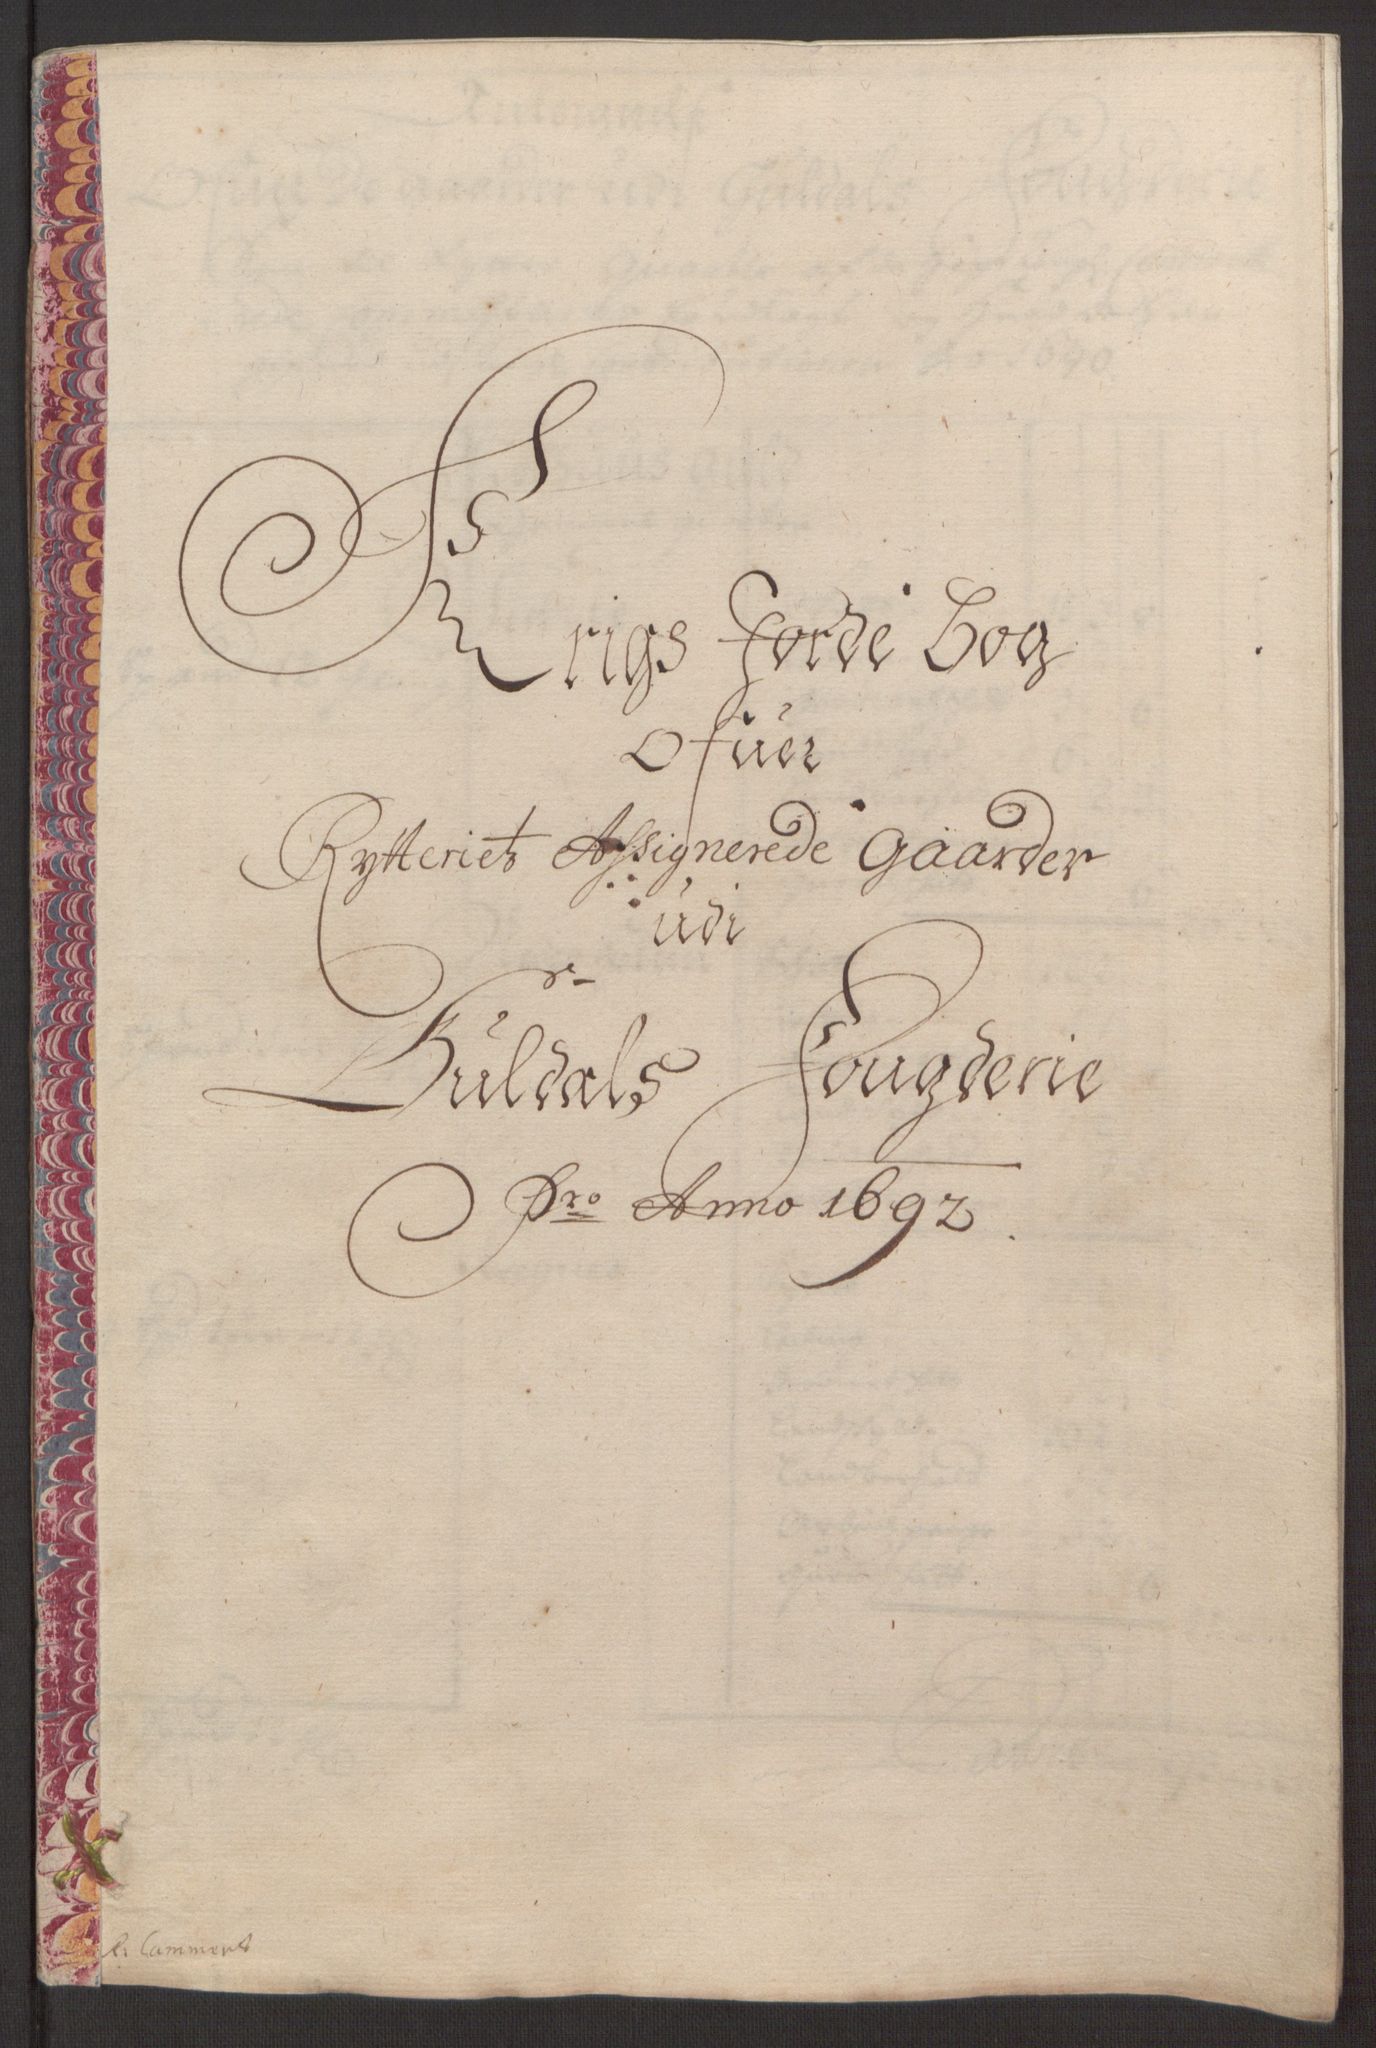 Krigs Jorde Bog
ofuer
Rytteriets Assignerede Gaarder
udi
Guldals Fougderie
Pro Anno 1692.